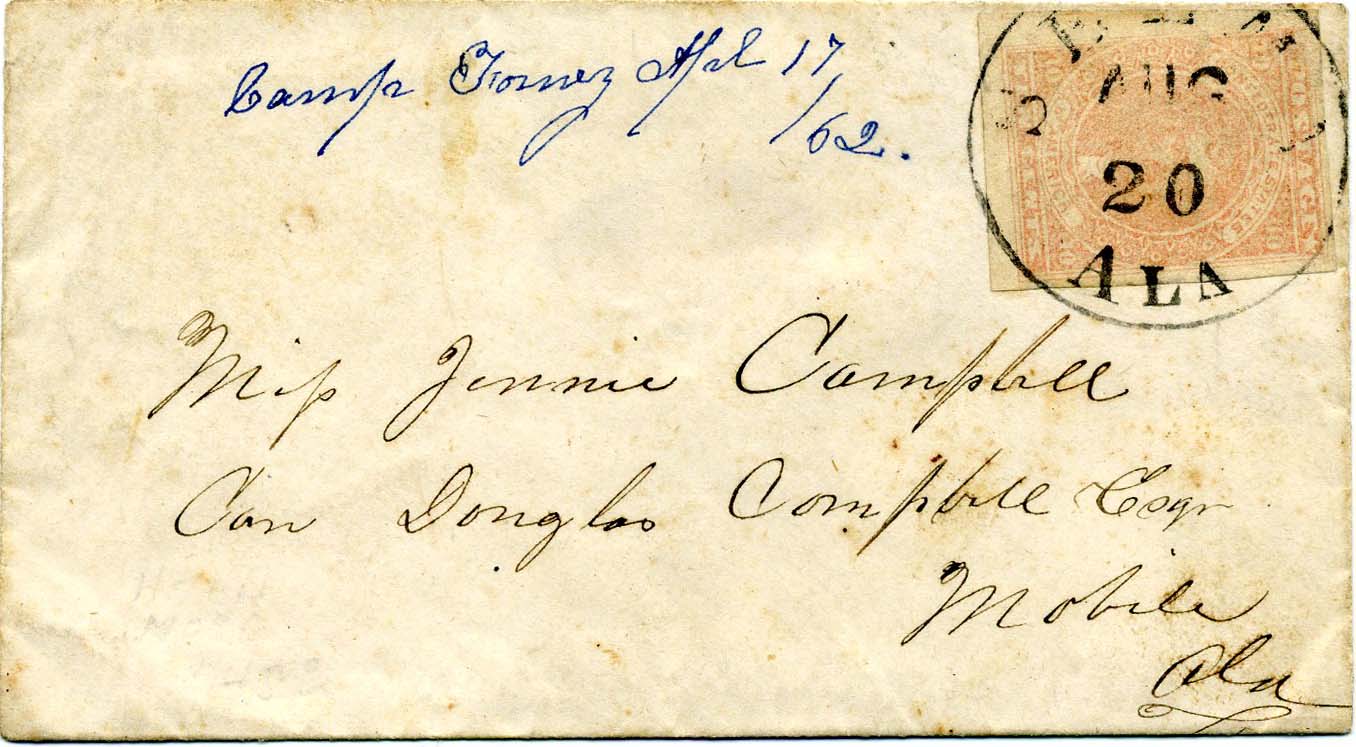 Camp Forney Apl 17
/62.
AUG
20
ALA
STATES
POSTAGE
10
Miss Jennie Campbell
Care Douglas Campbell Esqr
Mobile
Ala